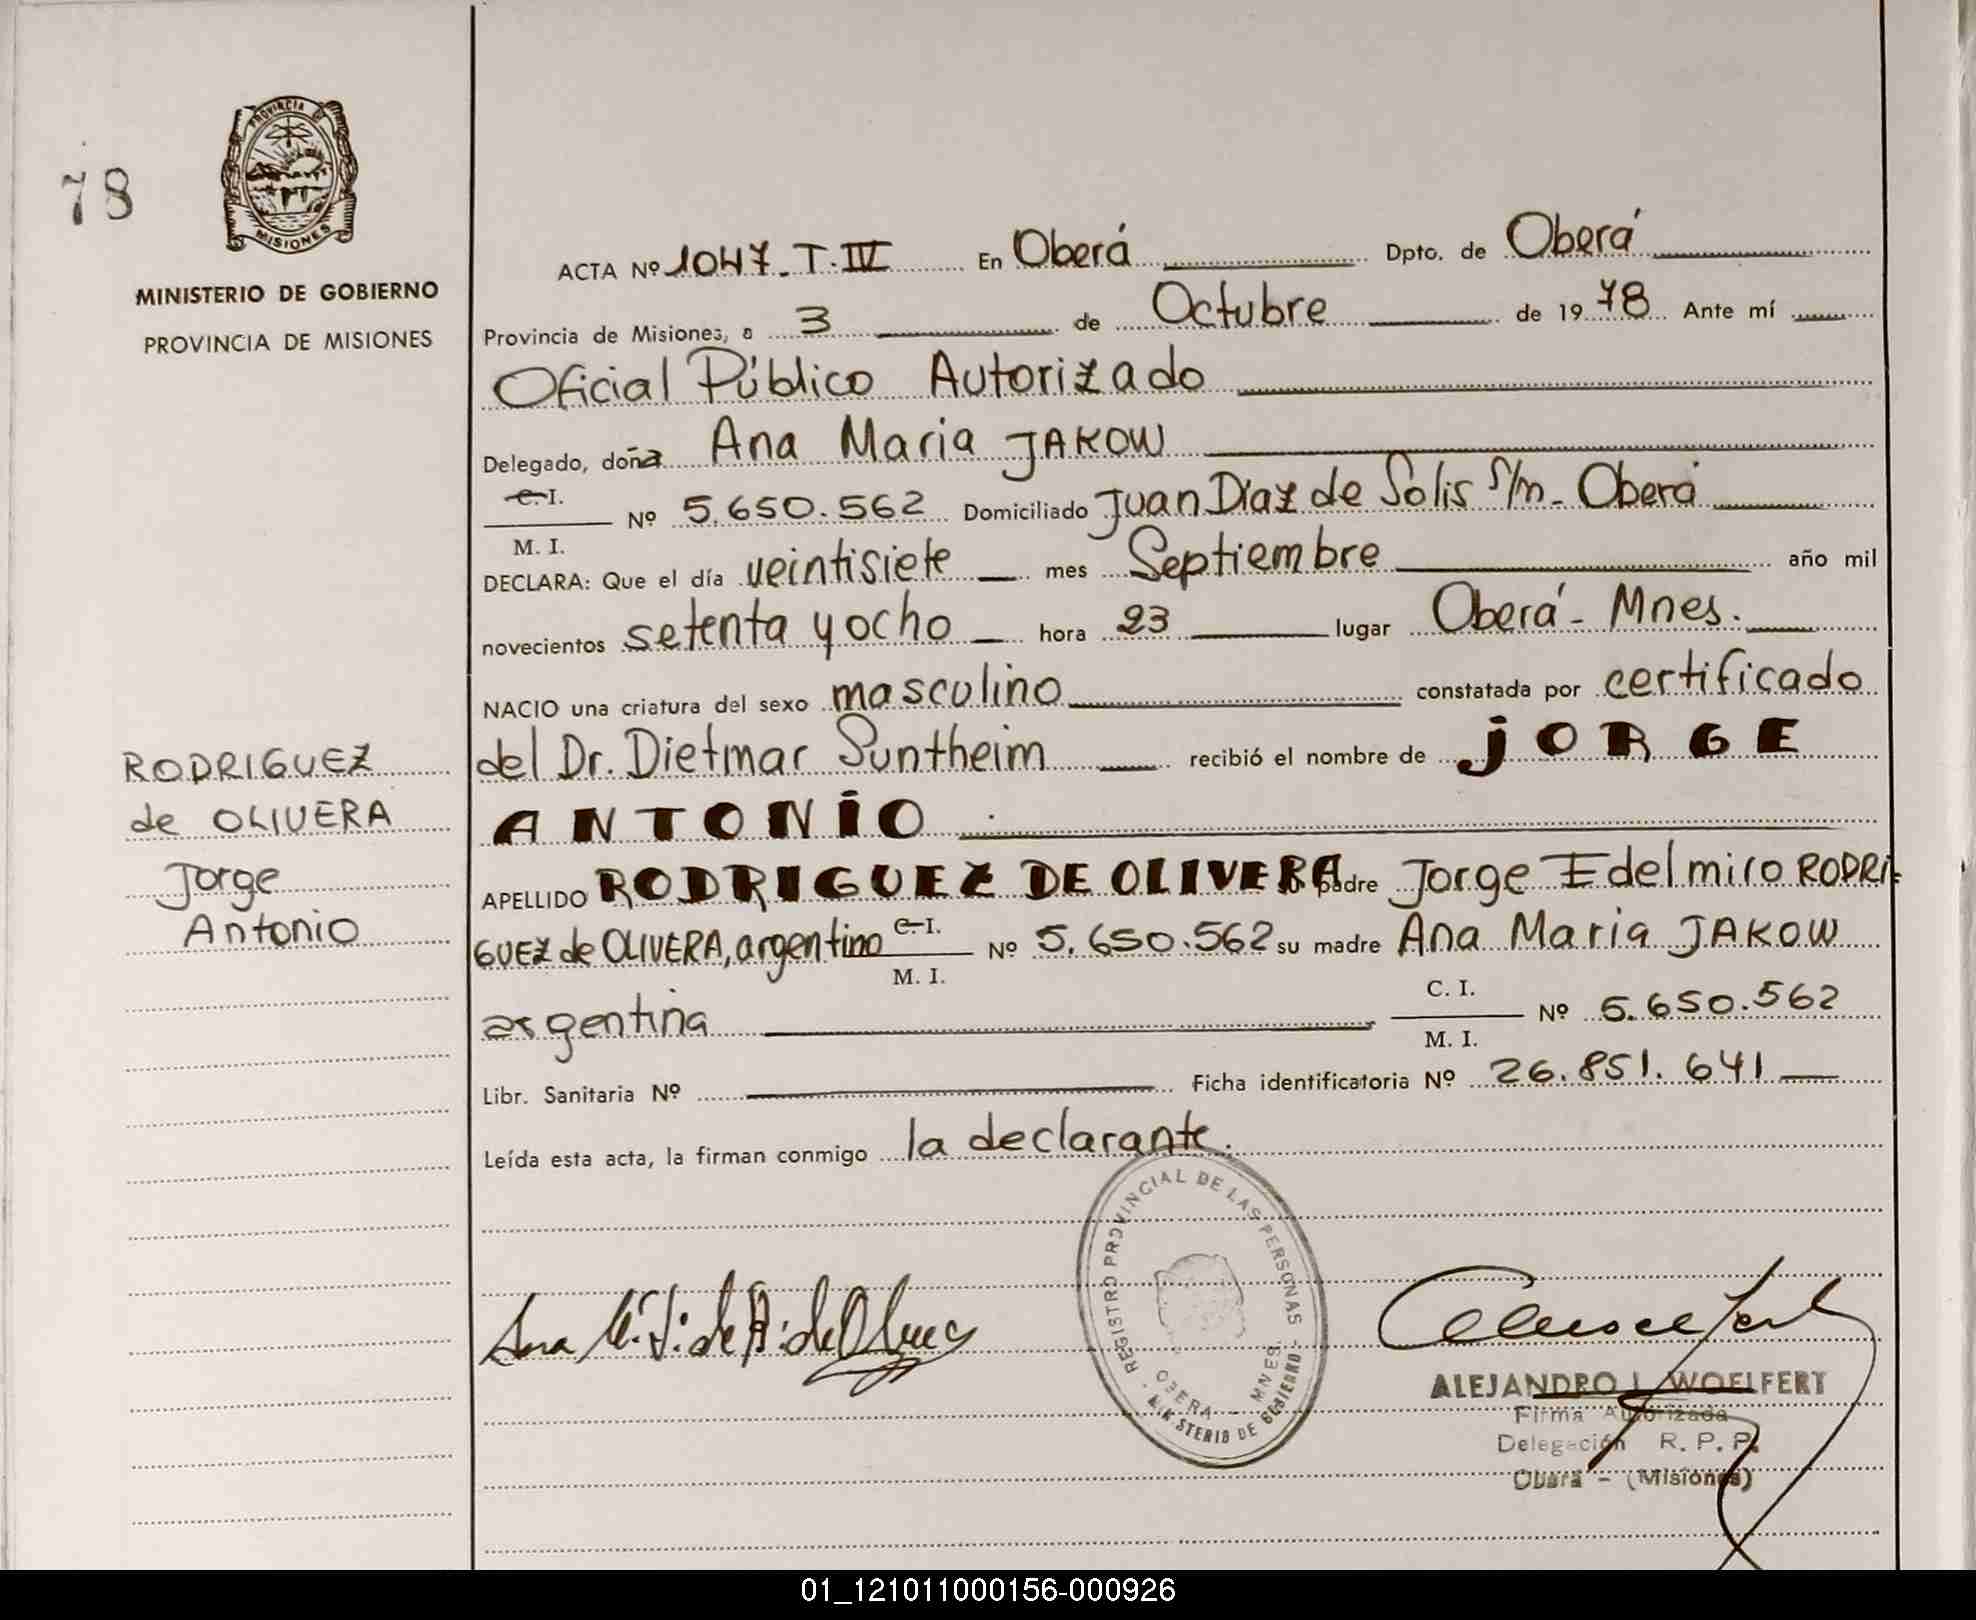 78
PROVINCIA DE
MISIONES
MINISTERIO DE GOBIERNO
PROVINCIA DE MISIONES
RODRIGUEZ
de OLIVERA
Jorge
Antonio
ACTA Nº 1047. T. IV En Oberá Dpto. de Oberá
Provincia de Misiones, a 3 de Octubre de 1978 Ante mí
Oficial Público Autorizado
Delegado, doña Ana Maria JAKOW
C. I.
Nº 5.650.562 Domiciliado Juan Díaz de Solis s/n - Oberá
M. I.
DECLARA: Que el día veintisiete mes Septiembre año mil
novecientos setenta y ocho hora 23 lugar Oberá - Mnes.
NACIO una criatura del sexo masculino constatada por certificado
del Dr. Dietmar Suntheim recibió el nombre de JORGE
ANTONIO
APELLIDO RODRIGUEZ DE OLIVERA padre Jorge Edelmiro RODRI
GUEZ de OLIVERA, argentino C. I. Nº 5.650.562 su madre Ana Maria JAKOW
M. I.
argentina C. I. Nº 5.650.562
M. I.
Libr. Sanitaria Nº Ficha identificatoria Nº 26.851.641
Leída esta acta, la firman conmigo la declarante.
REGISTRO PROVINCIAL DE LAS PERSONAS
OBERA - MNES.
MINISTERIO DE GOBIERNO
Ana M. J. de R. de Olivera
ALEJANDRO L. WOELFERT
Firma Autorizada
Delegación R. P. P.
Oberá - (Misiones)
01_121011000156-000926